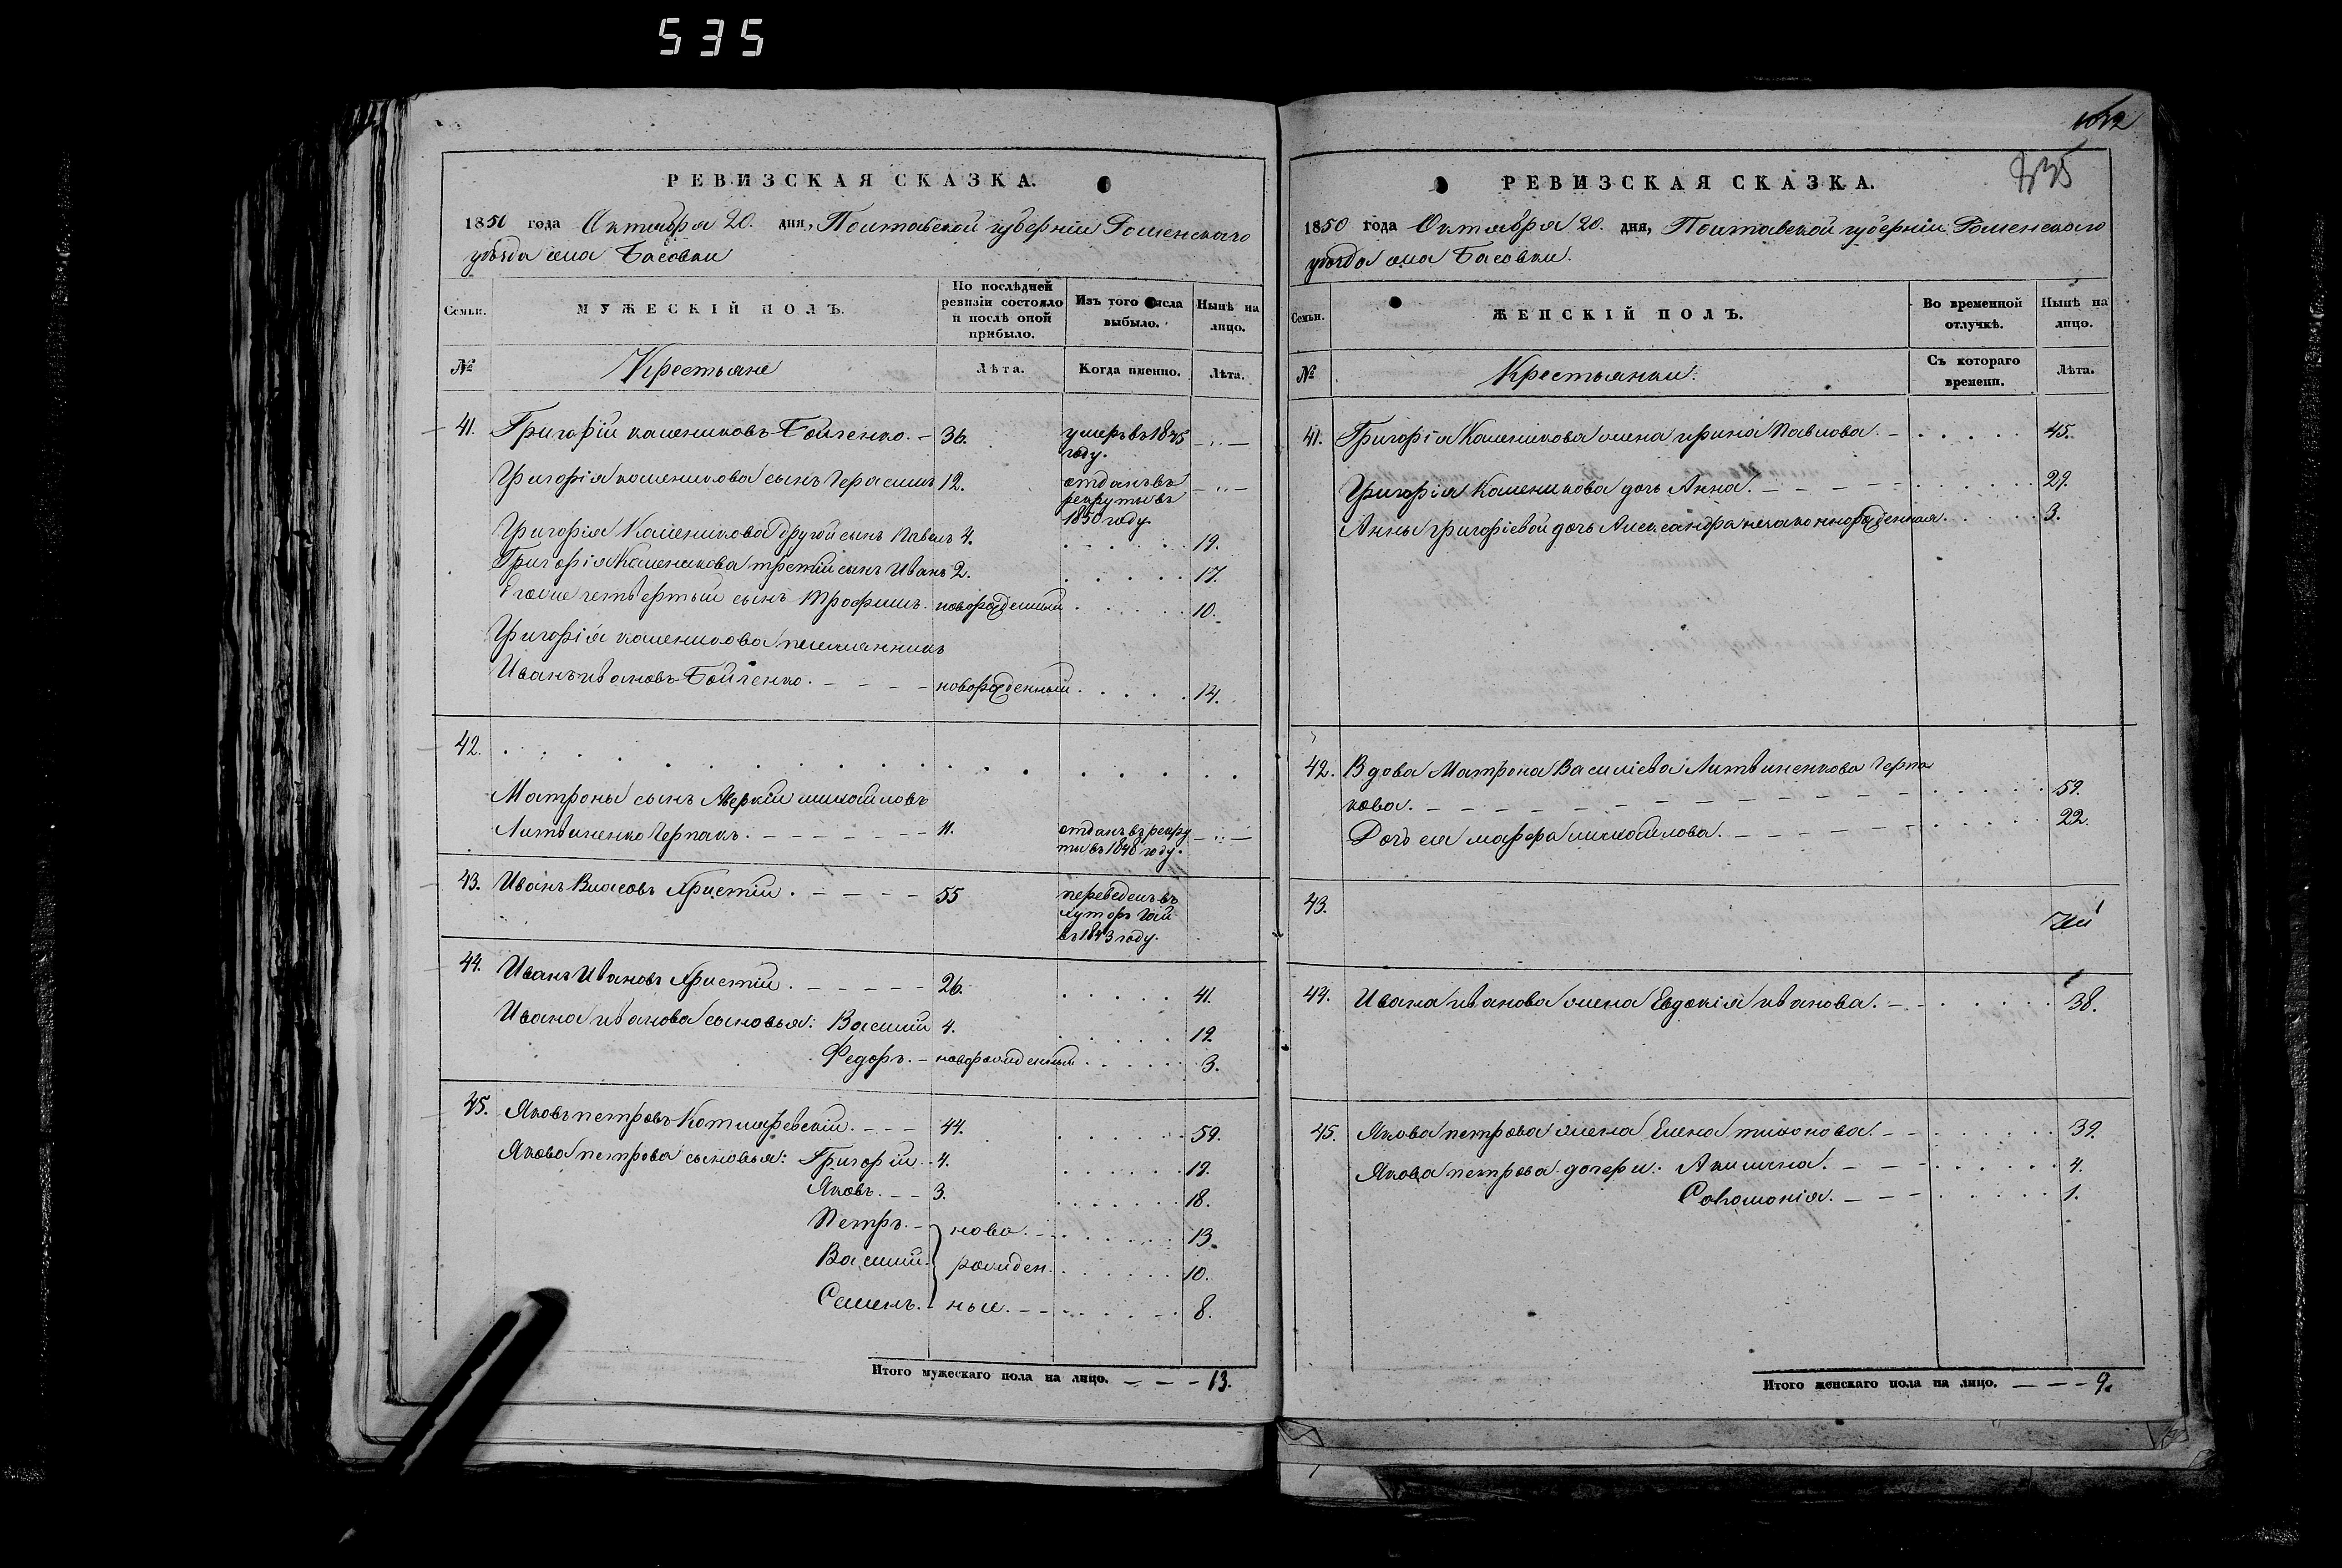 535
РЕВИЗСКАЯ СКАЗКА.
1850 года Октября 20. дня, Полтавской губерніи Роменскаго
уѣзда села Басовки
Семьи.
МУЖЕСКІЙ ПОЛЪ.
По послѣдней ревизіи состояло и послѣ оной прибыло.
Изъ того числа выбыло.
Нынѣ на лицо.
№
Крестьяне
Лѣта.
Когда именно.
Лѣта.
41. Григорій Калениковъ Бойченко. 36. умеръ въ 1845 году.
Григорія Каленикова сынъ Герасимъ 12. отданъ въ рекруты въ 1850 году.
Григорія Каленикова другой сынъ Павелъ 4. 19.
Григорія Каленикова третій сынъ Иванъ 2. 17.
Его же четвертый сынъ Трофимъ. новорожденный 10.
Григорія Каленикова племянникъ
Иванъ Ивановъ Бойченко. новорожденный 14.
42.
Матроны сынъ Аверкій Михайловъ
Литвиненко Черпакъ. 11. отданъ въ рекруты въ 1848 году.
43. Иванъ Власовъ Христій. 55 переведенъ въ хуторъ Гай въ 1843 году.
44. Иванъ Ивановъ Христій. 26. 41.
Ивана Иванова сыновья: Василій 4. 19
Федоръ. новорожденный 3.
45. Яковъ Петровъ Котляревскій. 44. 59.
Якова Петрова сыновья: Григорій 4. 19.
Яковъ. 3. 18.
Петръ. ново 13.
Василій. рожден 10.
Семенъ. ные. 8.
Итого мужескаго пола на лицо. 13.
РЕВИЗСКАЯ СКАЗКА.
1850 года Октября 20. дня, Полтавской губерніи Роменскаго
уѣзда села Басовки.
Семьи.
ЖЕНСКІЙ ПОЛЪ.
Во временной отлучкѣ.
Нынѣ на лицо.
№
Крестьянки.
Съ котораго времени.
Лѣта.
41. Григорія Каленикова жена Ирина Павлова. 45.
Григорія Каленикова дочь Анна. 29.
Анны Григоріевой дочь Александра незаконнорожденная. 3.
42. Вдова Матрона Василіева Литвиненкова Черпа
кова. 59.
Дочь ея Марфа Михайлова. 22.
43.
44. Ивана Иванова жена Евдокія Иванова. 38.
45. Якова Петрова жена Елена Тихонова. 39.
Якова Петрова дочери: Акилина. 4.
Соломонія. 1.
Итого женскаго пола на лицо. 9.